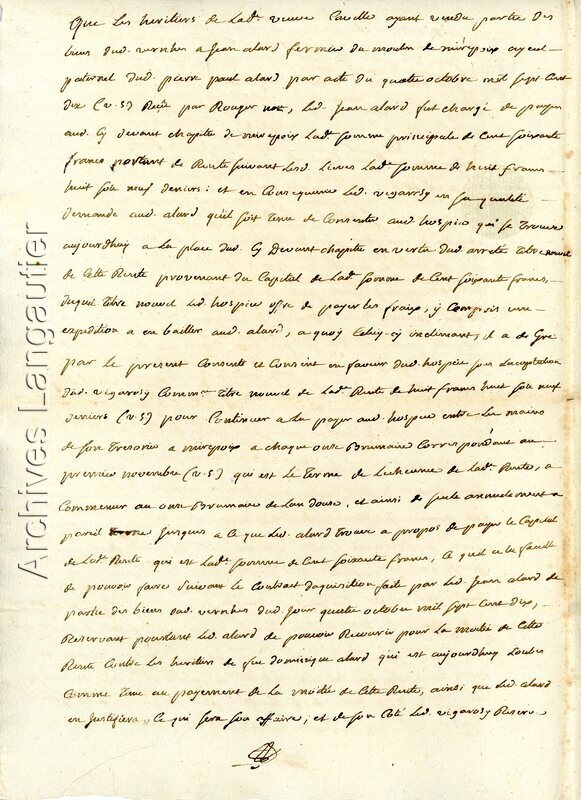 Que les heritiers de lad. veuve Caralle ayant vendu partie des
biens dud. vernhes a Jean alard fermier du moulin de mirepoix ayeul
paternel dud. pierre paul alard par acte du quatre octobre mil sept cent
dix (v.s) Retu par Rouger not, led. Jean alard fut chargé de payer
aud. Cy devant chapitre de mirepoix lad. somme principale de Cent soixante
francs portant de Rente suivant lesd. Lieves lad. somme de huit francs
huit sols neuf deniers ; et en Consequence led. vigarosy en sa qualité
demande aud. alard qu'il soit tenu de Consentir aud. hospice qui se trouve
aujourdhuy a la place dud. Cy Devant chapitre en vertu dud. arreté titre nouvel
de Cette Rente provenant du Capital de lad. somme de Cent soixante francs,
duquel titre nouvel led. hospice offre de payer les fraix, y Compris une
expedition a en bailler aud. alard, a quoy Celuy-cy inclinant, il a de Gré
par le present Consenti et Consent en faveur dud. hospice sous lacceptation
dud. vigarosy Comm.re titre nouvel de lad. Rente de huit francs huit sols neuf
deniers (v.s) pour Continuer a la payer aud. hospice entre les mains
de son Tresorier a mirepoix a chaque onze Brumaire Correspondant au
premier novembre (v.s) qui est le terme de Lecheance de lad. Rente, a
Commencer au onze Brumaire de Lan douze, et ainsi de suite annuelement a
pareil Jusques a Ce que led. alard trouve a propos de payer le Capital
de lad. Rente qui est lad. somme de Cent soixante francs, Ce quil a la faculté
de pouvoir faire suivant le Contract daquisition faite par led. Jean alard de
partie des biens dud. vernhes dud. jour quatre octobre mil sept cent dix,
Reservant pourtant led. alard de pouvoir Recourir pour la moitié de Cette
Rente Contre les heritiers de feu dominique alard qui est aujourdhuy Loubes
Comme tenu au payement de la moitié de Cette Rente, ainsi que led. alard
en Justifiera, Ce qui sera son affaire ; et de son Coté led. vigarosy Reserve
Archives Langautier